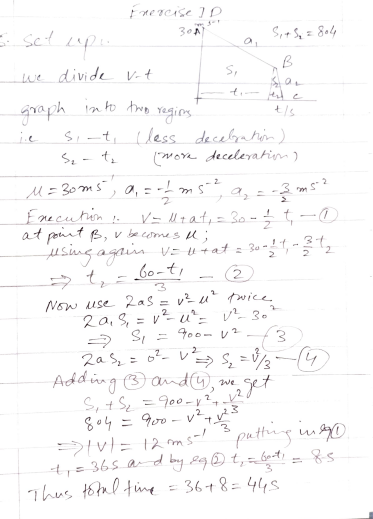 Exercise 1D
5. Set up:
30 A
a₁
S₁+S₂ = 804
B
S₁
S₂ a₂
t₁
t₂ c
t/s
we divide v-t
graph into two regions
i.e S₁ - t₁ (less deceleration)
S₂ - t₂ (more deceleration)
u = 30 ms⁻¹, a₁ = -1/2 ms⁻², a₂ = -3/2 ms⁻²
Execution :- V = u + at₁ = 30 - 1/2 t₁ — ①
at point B, v becomes u;
using again V = u + at = 30 - 1/2 t₁ - 3/2 t₂
⇒ t₂ = 60-t₁/3 — ②
Now use 2as = v² - u² twice
2a₁S₁ = v² - u² = v² - 30²
⇒ S₁ = 900 - v² — ③
2aS₂ = 0² - v² ⇒ S₂ = v²/3 — ④
Adding ③ and ④, we get
S₁ + S₂ = 900 - v² + v²/3
804 = 900 - v² + v²/3
⇒ |V| = 12 ms⁻¹ putting in eq ①
t₁ = 36s and by eq ② t₂ = 60-t₁/3 = 8s
Thus total time = 36+8 = 44s